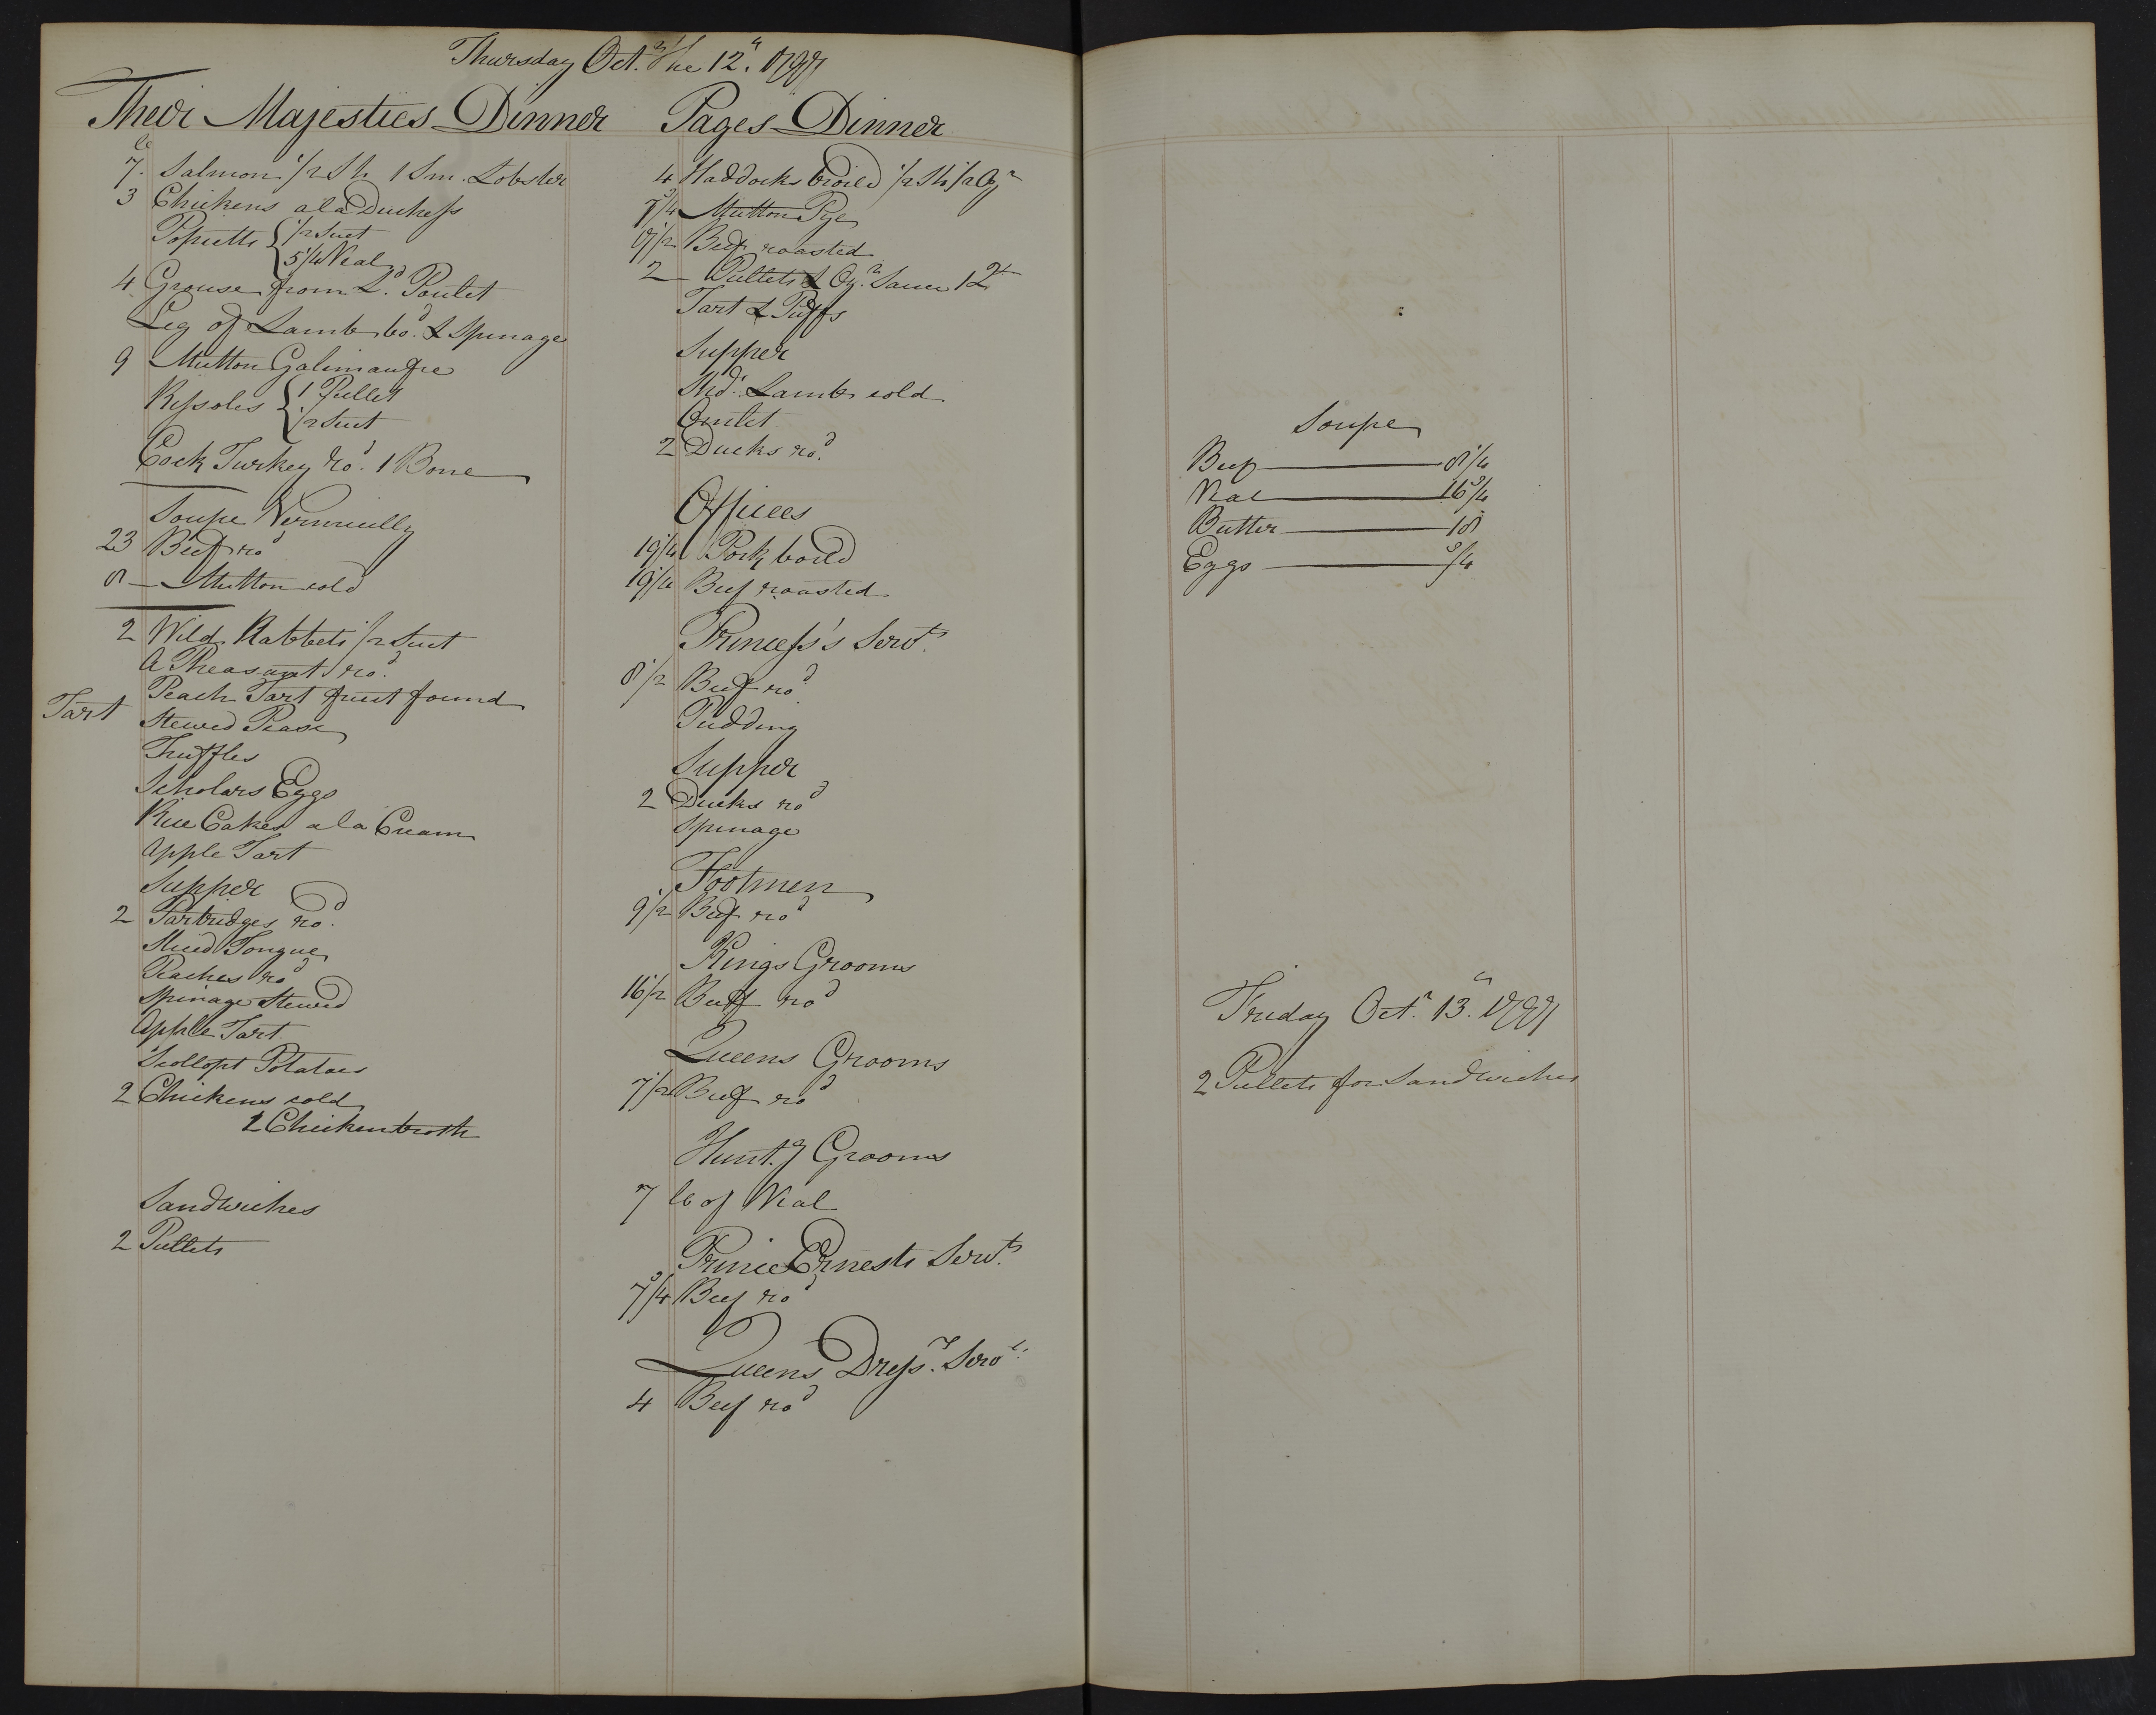 Thursday Oct.r the 12.th 1797
Their Majesties Dinner
lb
7. Salmon 1/2 Sh 1 Sm. Lobster
3 Chickens a la Duchess
Popietts { 1/2 Suet
5 1/4 Veal
4 Grouse from L.d Poulet
Leg of Lamb bo.d & Spinage
9 Mutton Galimaufre
Rissoles { 1 Pullet
1/2 Suet
Cock Turkey ro.d 1 Bone
Soupe Vermicelly
23 Beef ro.d
8 — Mutton cold
2 Wild Rabbets 1/2 Suet
A Pheasant ro.d
Peach Tart fruit found
Tart Stewed Pease
Truffles
Scholars Eggs
Rice Cakes a la Cream
Apple Tart
Supper
2 Partridges ro.d
Sliced Tongue
Peaches ro.d
Spinage Stewed
Apple Tart
Scollopt Potatoes
2 Chickens cold
2 Chicken broth
Sandwiches
2 Pullets
Pages Dinner
4 Haddocks broild 1/2 Sh 1/2 Oy.r
7 3/4 Mutton Pye
8 1/2 Beef roasted
2 — Pullets & Oy.r Sauce 1 Q.t
Tart & Puffs
Supper
Lamb cold
Omlet
2 Ducks ro.d
Offices
19 1/4 Pork boild
19 1/4 Beef roasted
Princess's Serv.ts
8 1/2 Beef ro.d
Pudding
Supper
2 Ducks ro.d
Spinage
Footmen
9 1/2 Beef ro.d
Kings Grooms
16 1/2 Beef ro.d
Queens Grooms
7 1/2 Beef ro.d
Hunt.g Grooms
7 lb of Veal
Prince Ernests Serv.ts
7 3/4 Beef ro.d
Queens Dress.r Serv.ts
4 Beef ro.d
Soupe
Beef — 8 1/4
Veal — 16 3/4
Butter — 18
Eggs — 3/4
Friday Oct.r 13.th 1797
2 Pullets for Sandwiches